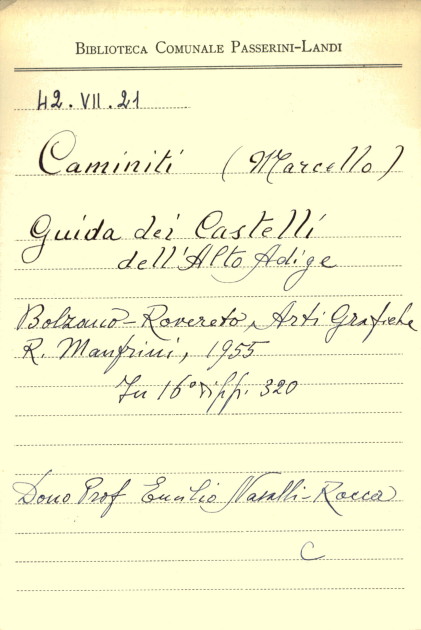 BIBLIOTECA COMUNALE PASSERINI-LANDI
42. VII. 21
Caminiti (Marcello)
Guida dei Castelli
dell'Alto Adige
Bolzano-Rovereto, Arti Grafiche
R. Manfrini, 1955
In 16° di pp. 320
Dono Prof Emilio Nasalli-Rocca
C